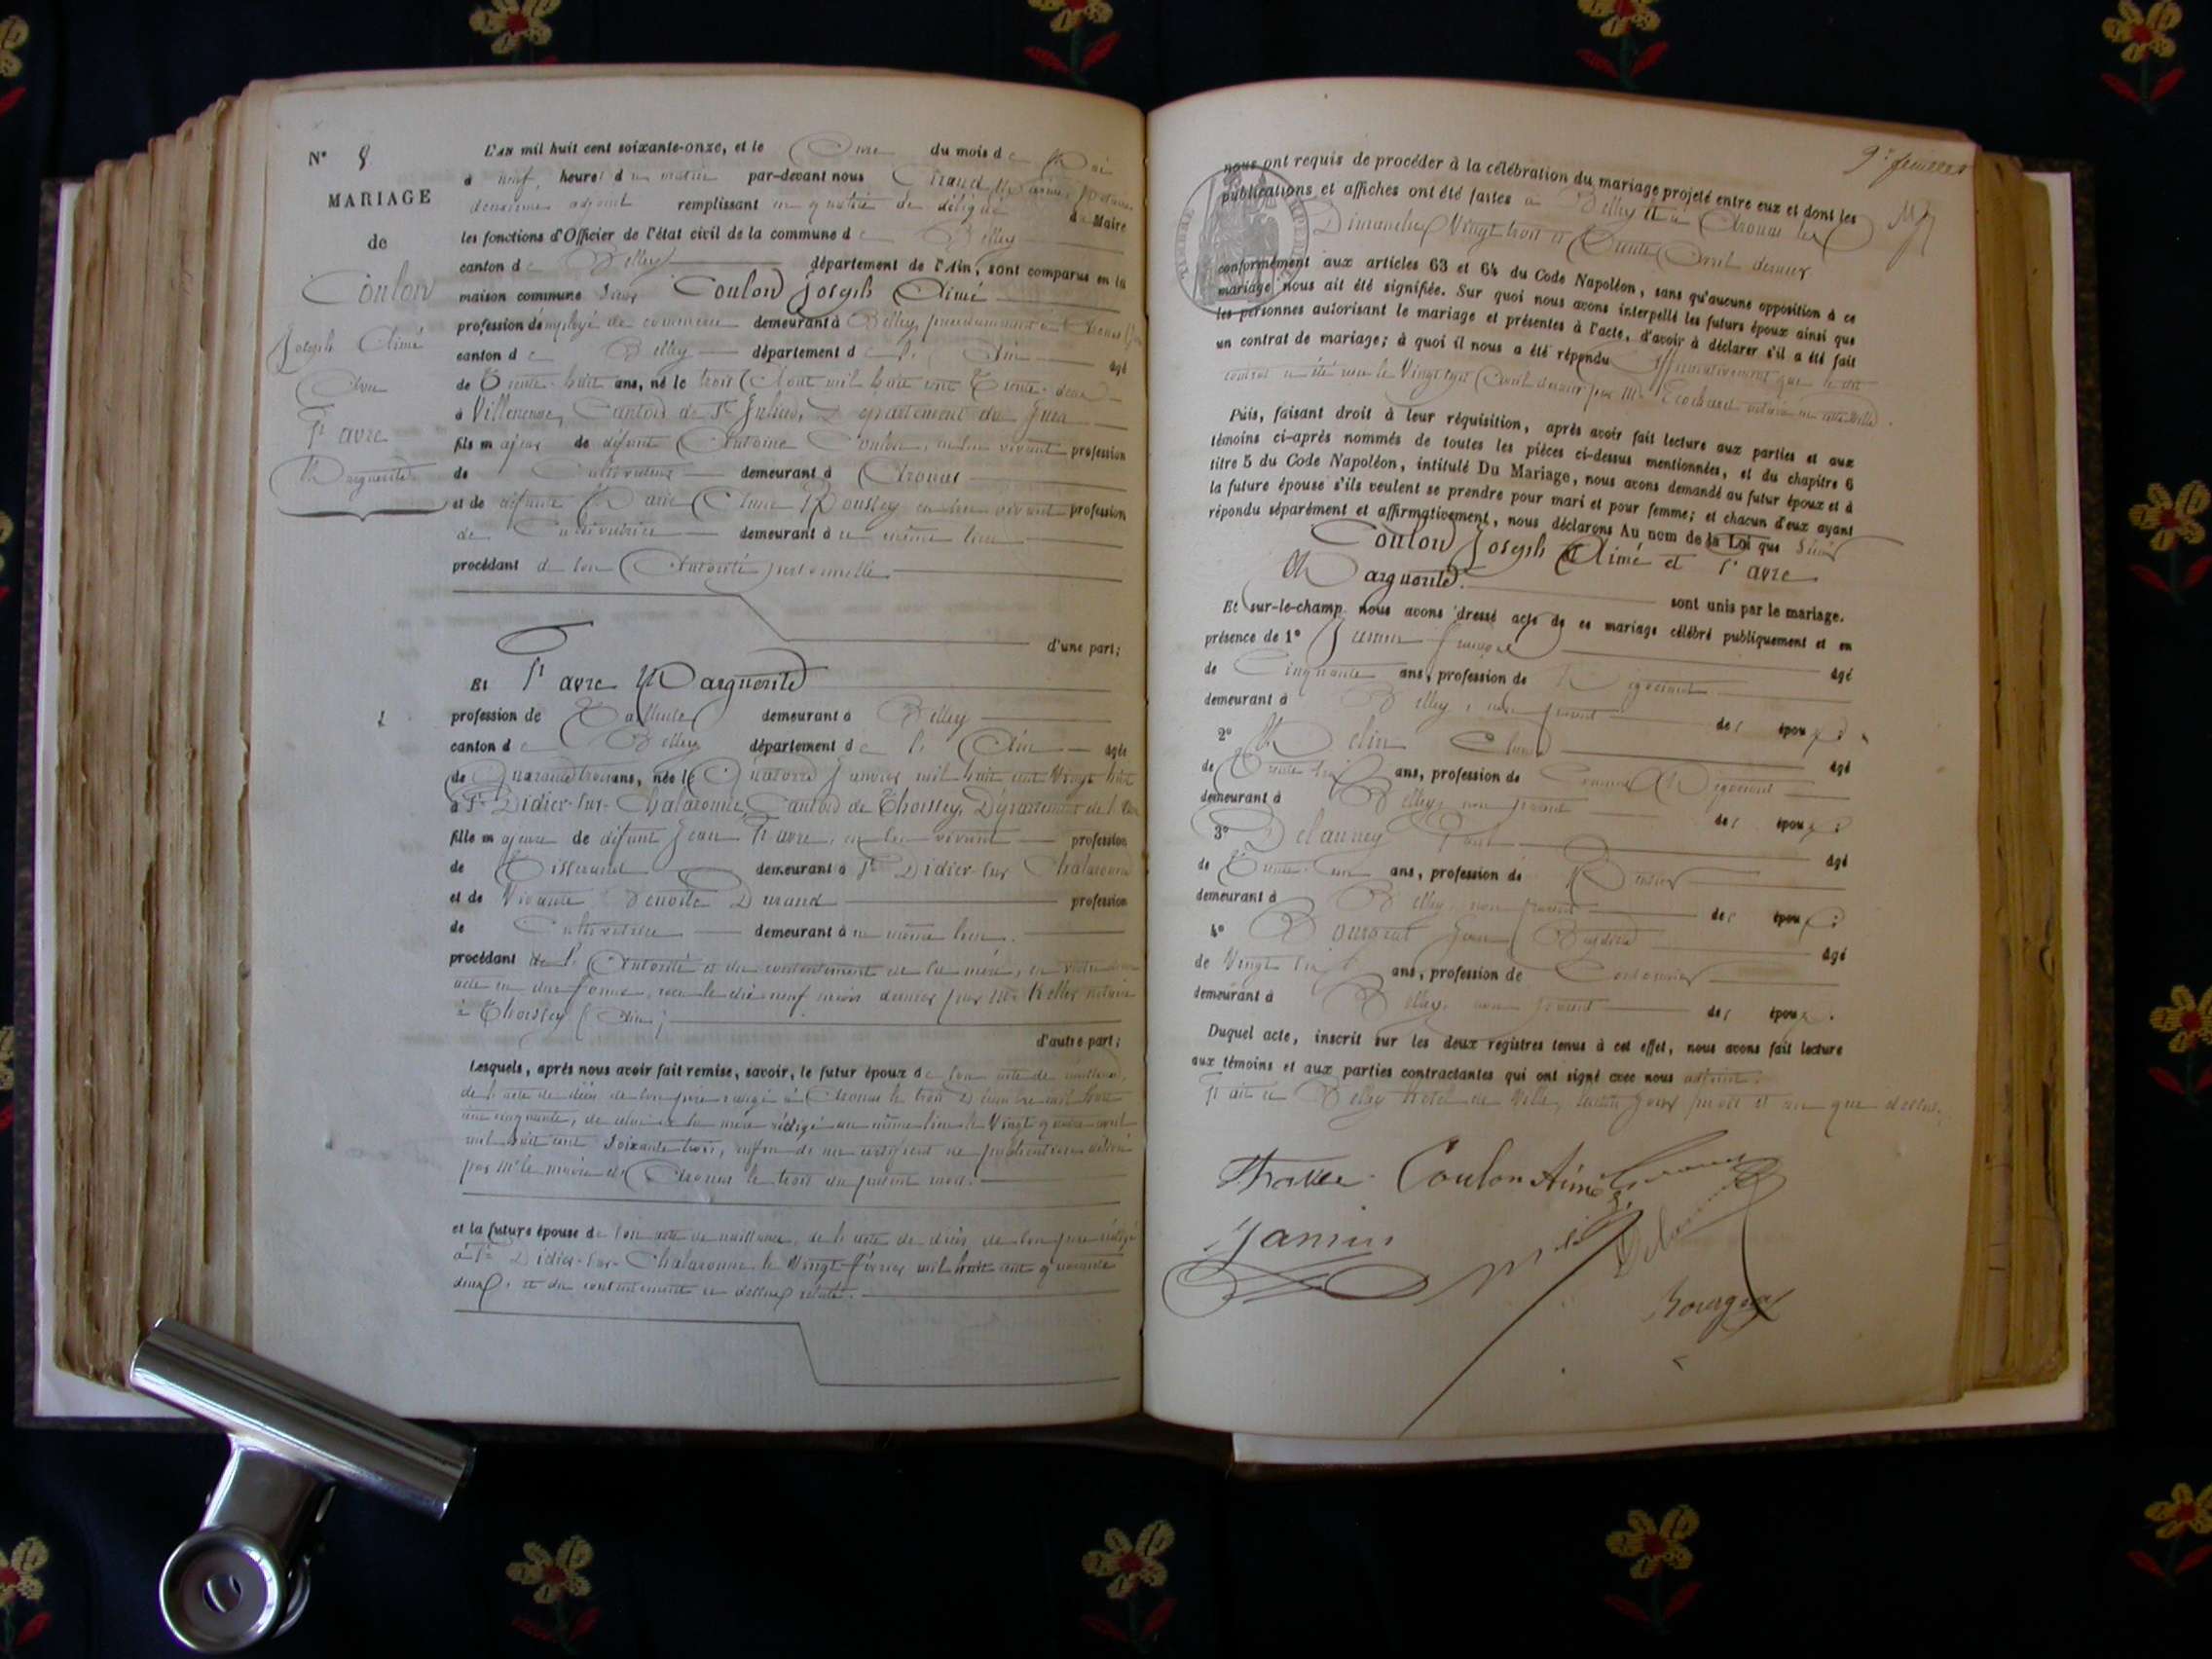 N° 8
MARIAGE
de
Coulon
Joseph Aimé
Avec
Favre
Marguerite
L'an mil huit cent soixante-onze, et le Onze du mois de Mai
à neuf heures du matin par-devant nous Giraud
deuxième adjoint remplissant en qualité de délégué du Maire
les fonctions d'Officier de l'état civil de la commune de Belley
canton de Belley département de l'Ain, sont comparus en la
maison commune Sieur Coulon Joseph Aimé
profession d'employé de commerce demeurant à Belley, précédemment à
canton de Belley département de l'Ain âgé
de Trente-huit ans, né le trois Août mil huit cent Trente-deux
à Villeneuve, Canton de St Julien, Département du Jura
fils majeur de défunt Antoine Coulon, en son vivant profession
de Cultivateur demeurant à Aromas
et de défunte Marie Anne Roussey en son vivant profession
de Cultivatrice demeurant à ce même lieu
procédant de son Autorité personnelle
d'une part;
Et Favre Marguerite
profession de Tailleuse demeurant à Belley
canton de Belley département de l'Ain âgée
de Quarante trois ans, née le Quatorze Janvier mil huit cent Vingt huit
à St Didier-sur-Chalaronne, Canton de Thoissey, Département de l'Ain
fille majeure de défunt Jean Favre, en son vivant profession
de Tisserand demeurant à St Didier-sur Chalaronne
et de Vivante Benoite Durand profession
de Cultivatrice demeurant à ce même lieu.
procédant de l'Autorité et du consentement de sa mère, en vertu d'un
acte en due forme, reçu le dix neuf mars dernier par Me Keller notaire
à Thoissey (Ain)
d'autre part;
Lesquels, après nous avoir fait remise, savoir, le futur époux de son acte de naissance,
de l'acte de décès de son père rédigé à Aromas le trois Décembre mil huit
cent cinquante, de celui de sa mère rédigé au même lieu le Vingt quatre avril
mil huit cent Soixante trois, enfin de un certificat de publications délivré
par Mr le maire de Aromas le trois du présent mois.
et la future épouse de son acte de naissance, de l'acte de décès de son père rédigé
à St Didier-sur-Chalaronne, le Vingt Février mil huit cent quarante
deux, et du consentement ci dessus relaté.
9e feuillet
nous ont requis de procéder à la célébration du mariage projeté entre eux et dont les
publications et affiches ont été faites à Belley et à Aromas les
Dimanches Vingt trois et Trente Avril dernier
conformément aux articles 63 et 64 du Code Napoléon, sans qu'aucune opposition à ce
mariage nous ait été signifiée. Sur quoi nous avons interpellé les futurs époux ainsi que
les personnes autorisant le mariage et présentes à l'acte, d'avoir à déclarer s'il a été fait
un contrat de mariage; à quoi il nous a été répondu Affirmativement que le dit
contrat a été reçu le Vingt sept Avril dernier par Me Ecochard notaire en cette Ville.
Puis, faisant droit à leur réquisition, après avoir fait lecture aux parties et aux
témoins ci-après nommés de toutes les pièces ci-dessus mentionnées, et du chapitre 6
titre 5 du Code Napoléon, intitulé Du Mariage, nous avons demandé au futur époux et à
la future épouse s'ils veulent se prendre pour mari et pour femme; et chacun d'eux ayant
répondu séparément et affirmativement, nous déclarons Au nom de la Loi que Sieur
Coulon Joseph Aimé et Favre
Marguerite.
sont unis par le mariage.
Et sur-le-champ nous avons dressé acte de ce mariage célébré publiquement et en
présence de 1° Janin François âgé
de Cinquante ans, profession de Négociant
demeurant à Belley, non parent des époux;
2° Melin Claude âgé
de Trente trois ans, profession de Commis Négociant
demeurant à Belley, non parent des époux;
3° Delauney Paul âgé
de Trente un ans, profession de Rentier
demeurant à Belley, non parent des époux;
4° Bourgeat Jean Baptiste âgé
de Vingt six ans, profession de Cordonnier
demeurant à Belley, non parent des époux.
Duquel acte, inscrit sur les deux registres tenus à cet effet, nous avons fait lecture
aux témoins et aux parties contractantes qui ont signé avec nous adjoint.
Fait à Belley Hôtel de Ville, lesdits jours mois et an que dessus.
Coulon Aimé
Janin
Bourgeat